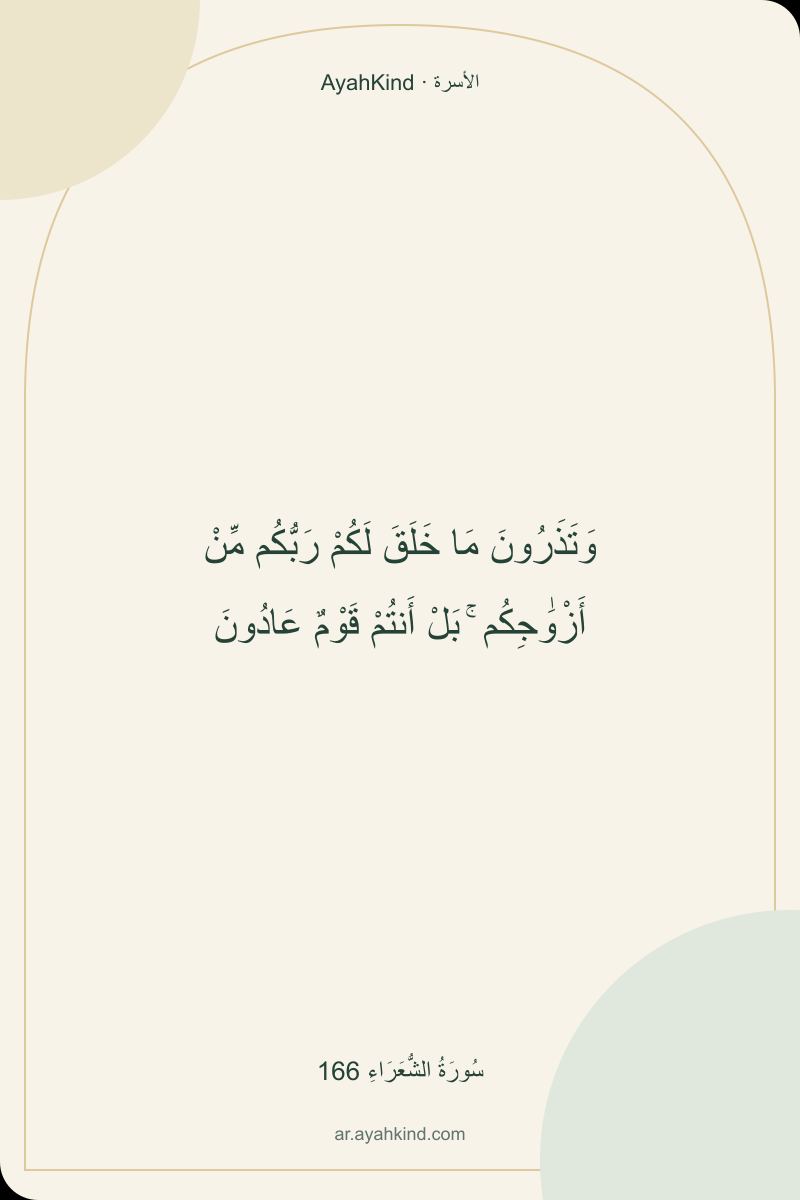 AyahKind · الأسرة
وَتَذَرُونَ مَا خَلَقَ لَكُمْ رَبُّكُم مِّنْ
أَزْوَٰجِكُم ۚ بَلْ أَنتُمْ قَوْمٌ عَادُونَ
سُورَةُ الشُّعَرَاءِ 166
ar.ayahkind.com